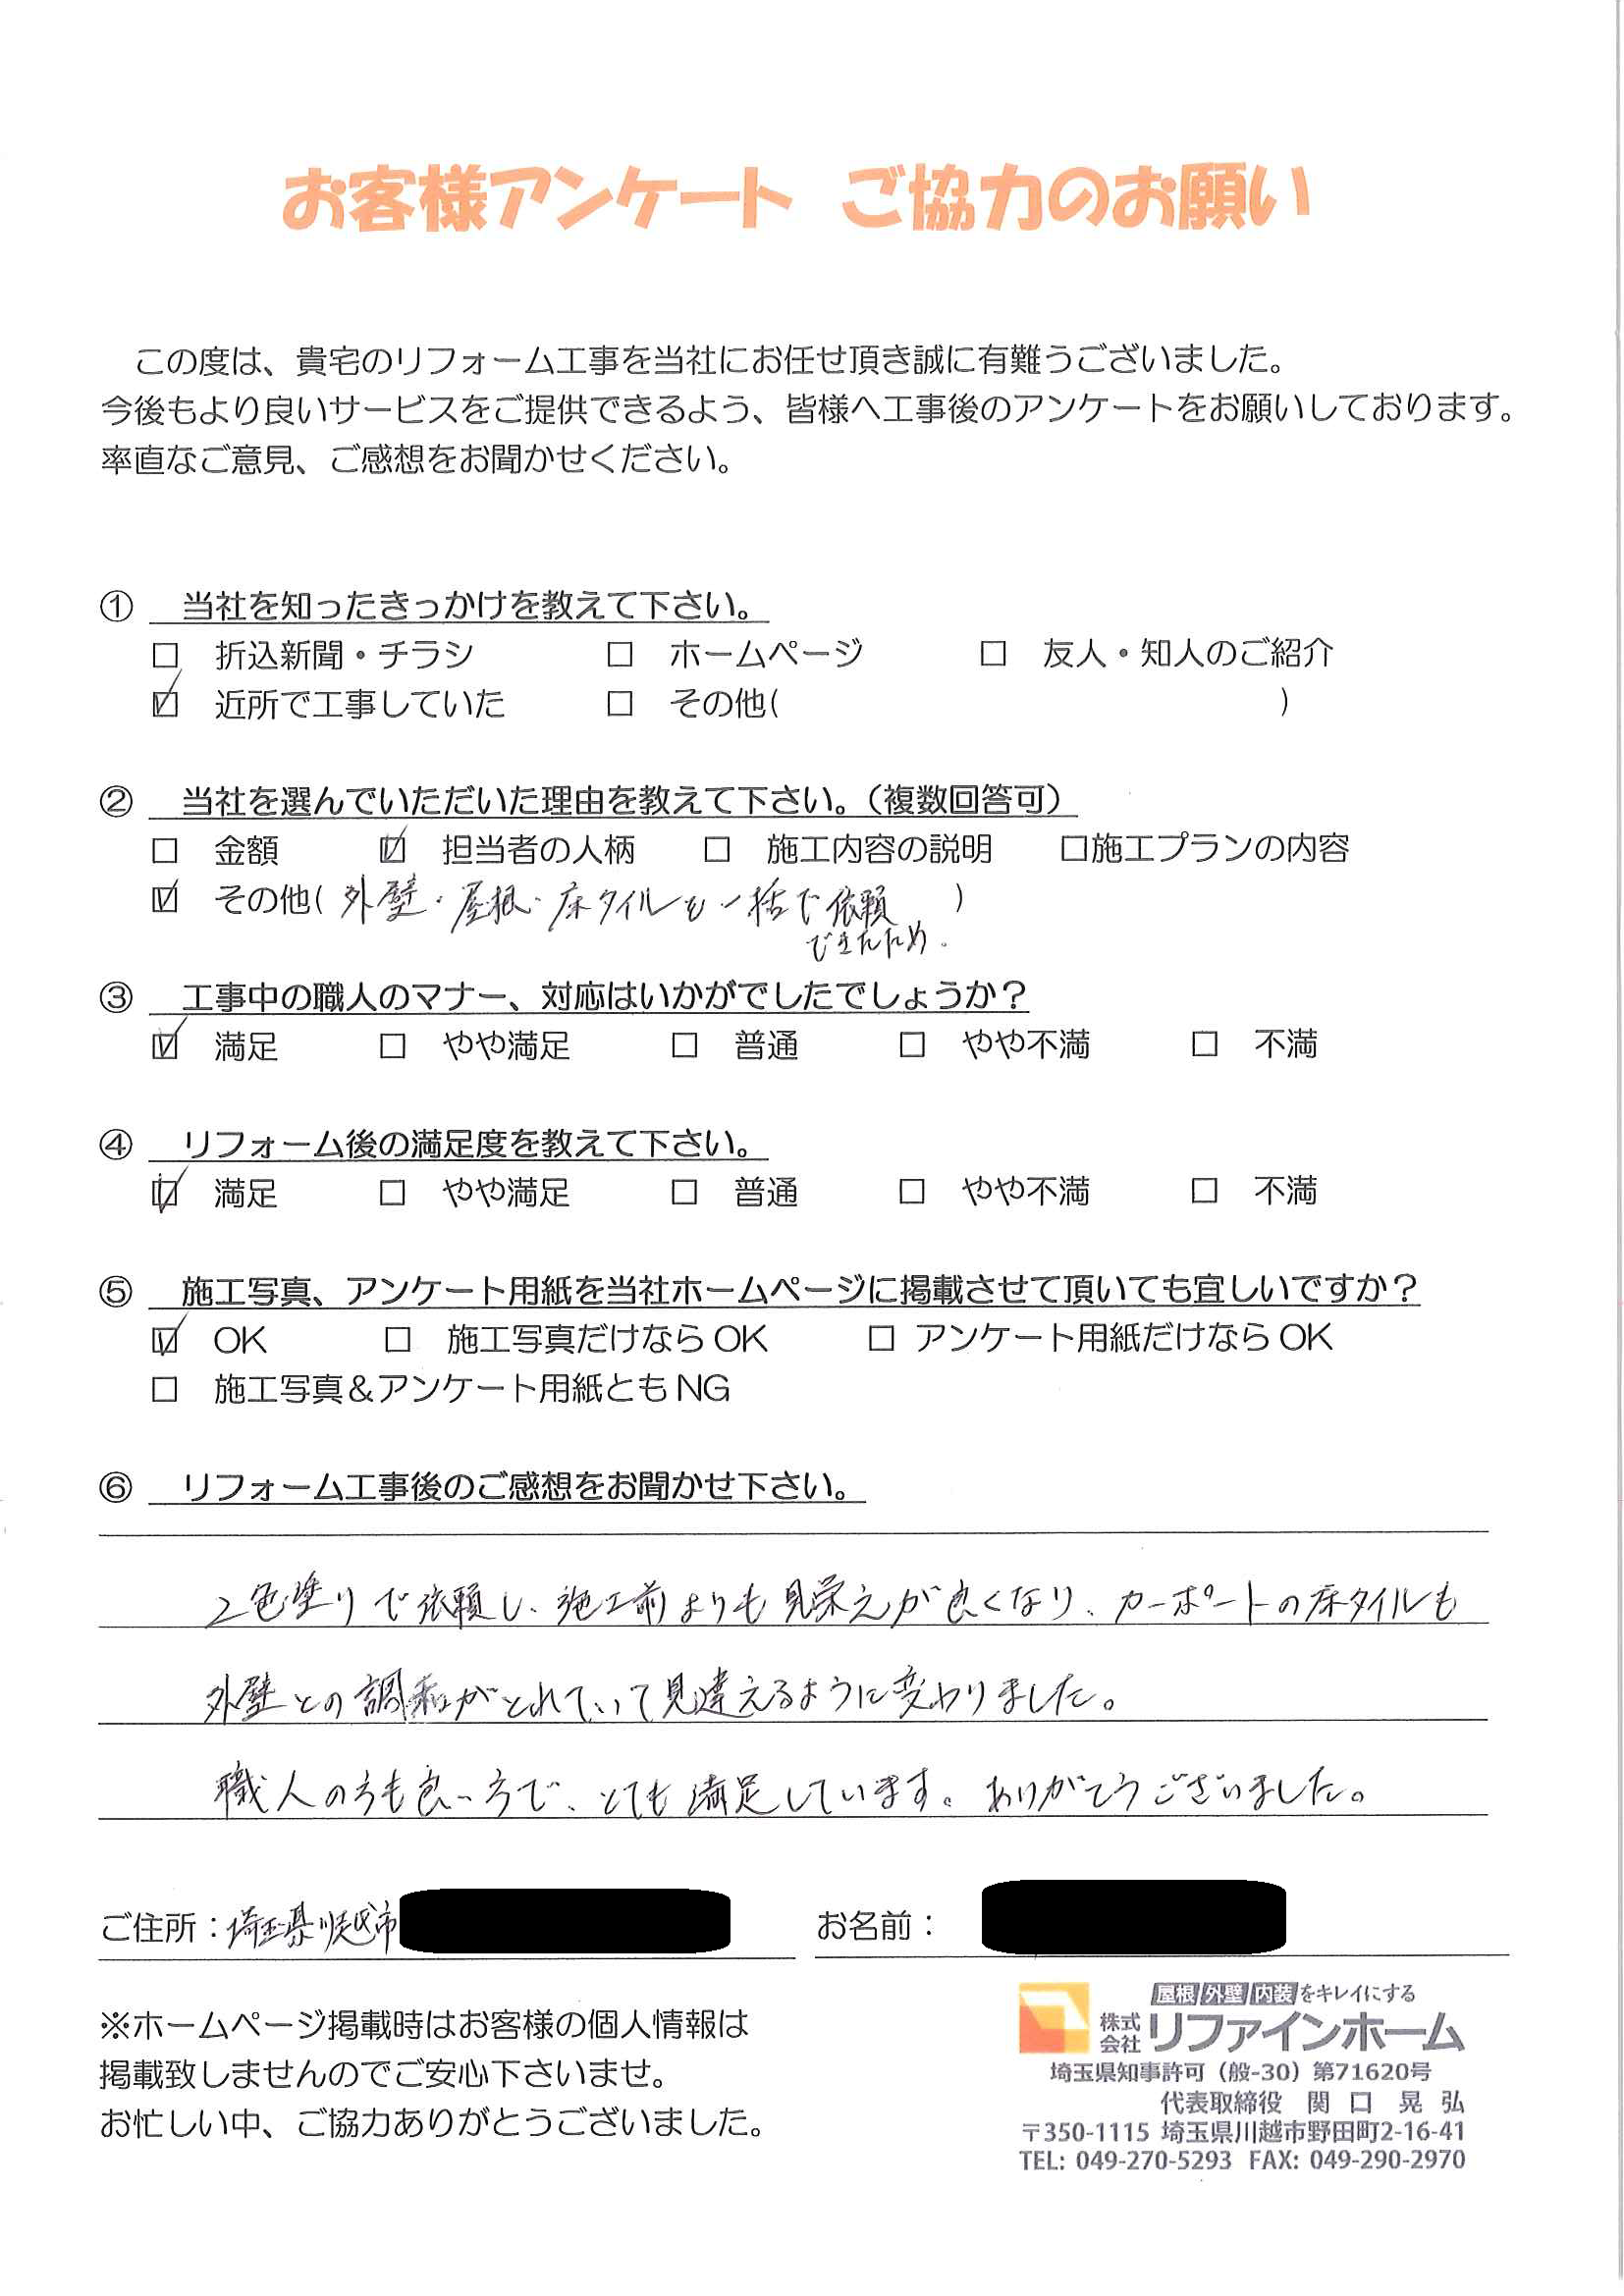 お客様アンケート ご協力のお願い
この度は、貴宅のリフォーム工事を当社にお任せ頂き誠に有難うございました。
今後もより良いサービスをご提供できるよう、皆様へ工事後のアンケートをお願いしております。
率直なご意見、ご感想をお聞かせください。
① 当社を知ったきっかけを教えて下さい。
□ 折込新聞・チラシ □ ホームページ □ 友人・知人のご紹介
☑ 近所で工事していた □ その他( )
② 当社を選んでいただいた理由を教えて下さい。（複数回答可）
□ 金額 ☑ 担当者の人柄 □ 施工内容の説明 □施工プランの内容
☑ その他( 外壁・屋根・床タイルを一括で依頼 )
できたため。
③ 工事中の職人のマナー、対応はいかがでしたでしょうか？
☑ 満足 □ やや満足 □ 普通 □ やや不満 □ 不満
④ リフォーム後の満足度を教えて下さい。
☑ 満足 □ やや満足 □ 普通 □ やや不満 □ 不満
⑤ 施工写真、アンケート用紙を当社ホームページに掲載させて頂いても宜しいですか？
☑ OK □ 施工写真だけなら OK □ アンケート用紙だけなら OK
□ 施工写真＆アンケート用紙とも NG
⑥ リフォーム工事後のご感想をお聞かせ下さい。
2色塗りで依頼し、施工前よりも見栄えが良くなり、カーポートの床タイルも
外壁との調和がとれていて見違えるように変わりました。
職人の方も良い方で、とても満足しています。ありがとうございました。
ご住所：埼玉県川越市 お名前：
※ホームページ掲載時はお客様の個人情報は
掲載致しませんのでご安心下さいませ。
お忙しい中、ご協力ありがとうございました。
屋根 外壁 内装 をキレイにする
株式会社 リファインホーム
埼玉県知事許可（般-30）第71620号
代表取締役 関口 晃弘
〒350-1115 埼玉県川越市野田町2-16-41
TEL: 049-270-5293 FAX: 049-290-2970